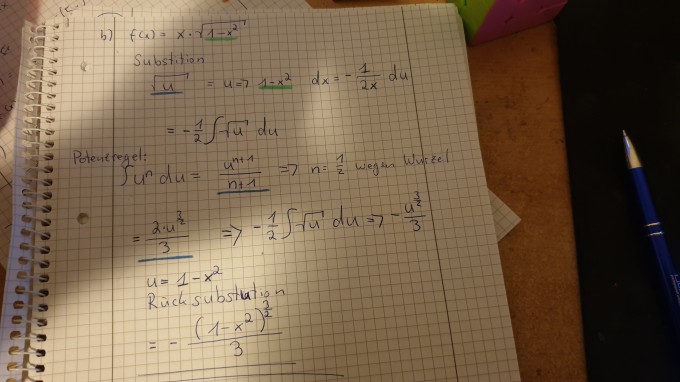 b) f(x) = x · √(1-x²)
Substition
√u = u => 1-x² dx = - 1/(2x) du
= - 1/2 ∫ √u du
Potenzregel:
∫ uⁿ du = uⁿ⁺¹/(n+1) => n = 1/2 wegen Wurzel
= (2·u^(3/2))/3 => - 1/2 ∫ √u du => - u^(3/2)/3
u = 1-x²
Rücksubstitution
= - (1-x²)^(3/2)/3